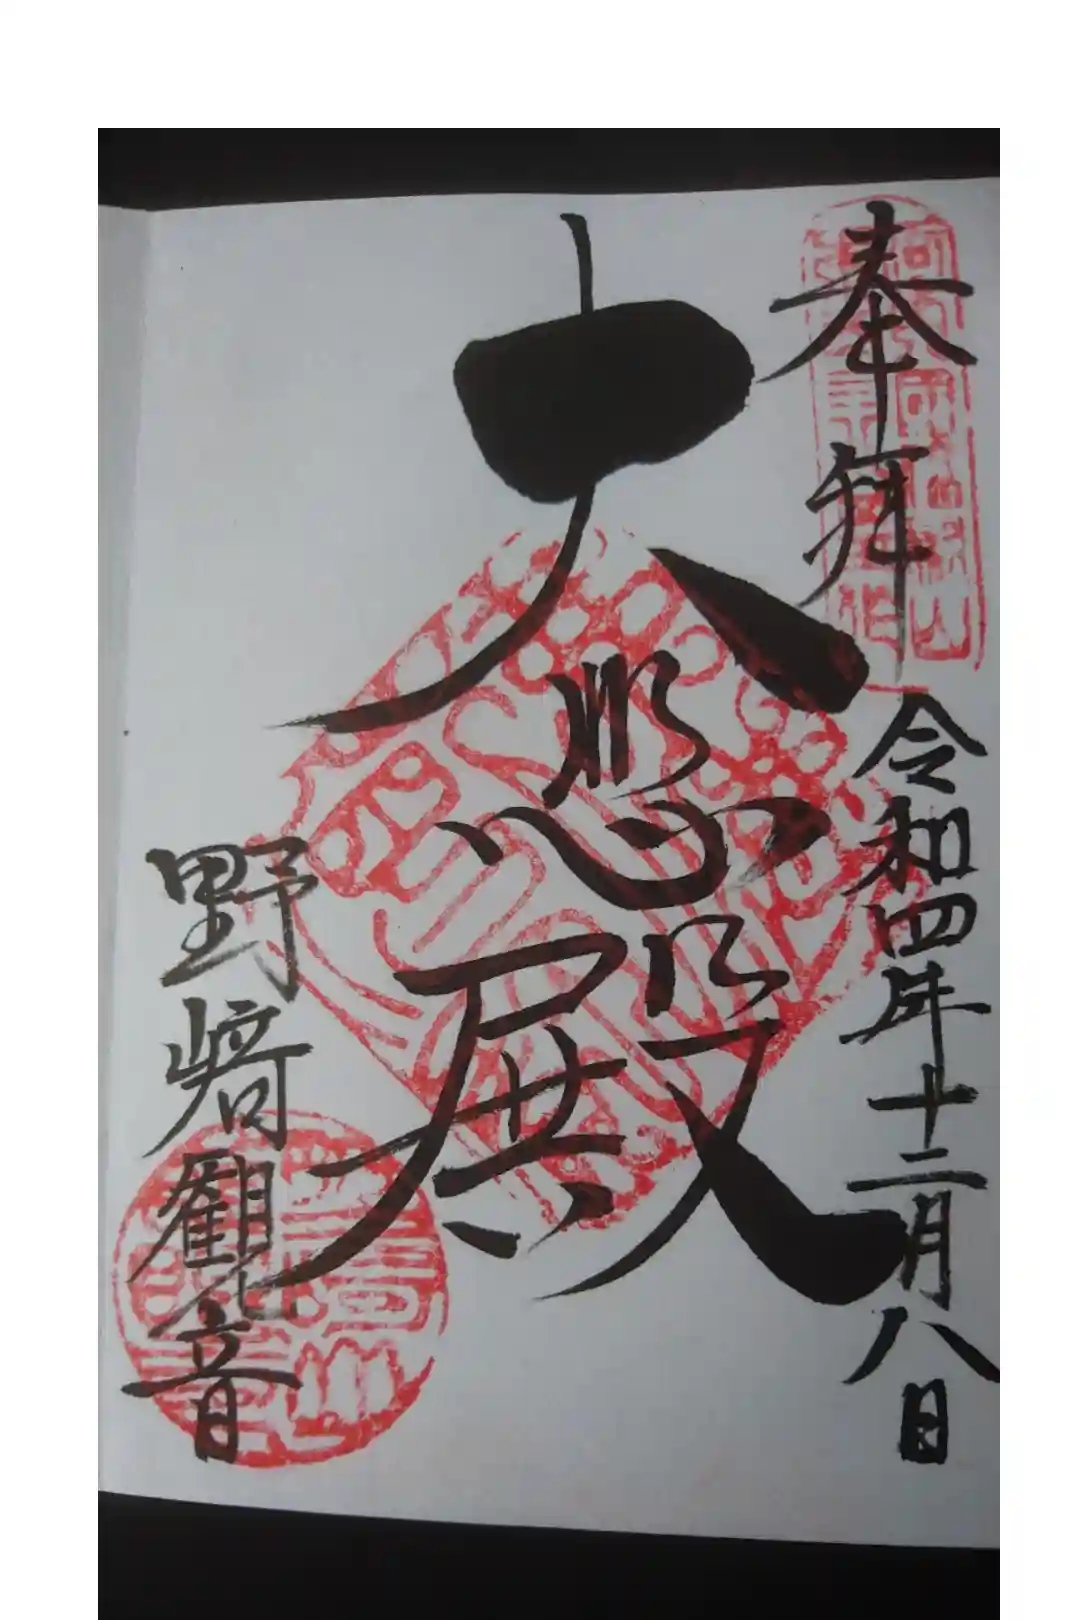 奉拜
令和四年十二月八日
大悲殿
野﨑観音